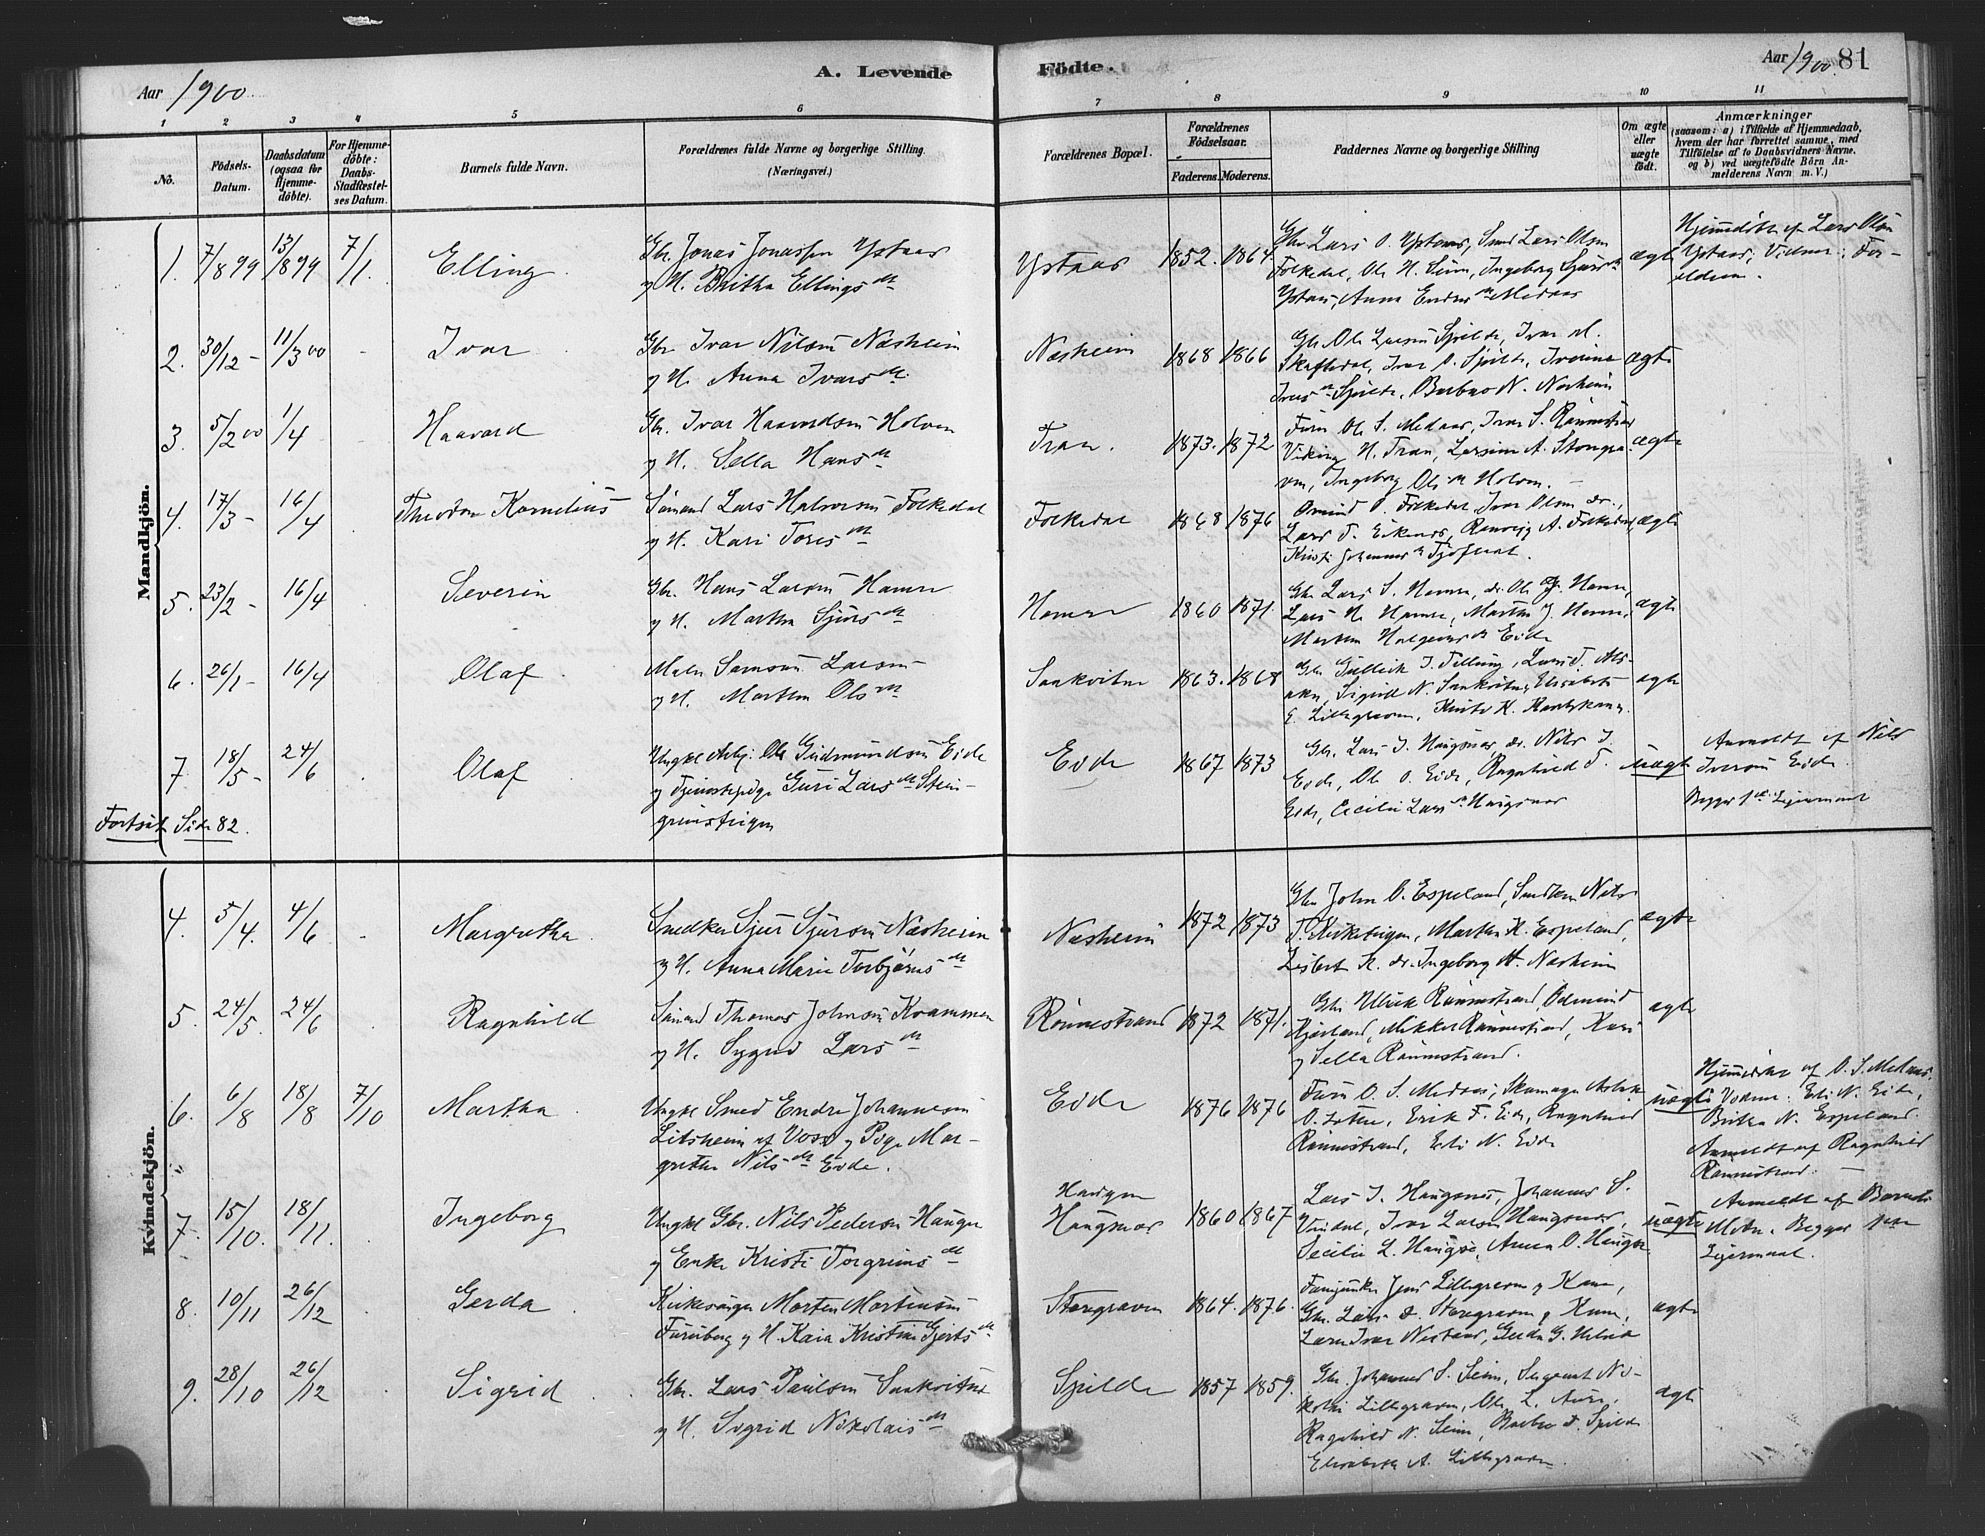 Aar 1900
A. Levende Födte.
Aar 1900. 81
1 2 3 4 5 6 7 8 9 10 11
No.
Födsels-Datum.
Daabsdatum (ogsaa for Hjemme-döbte).
For Hjemme-döbte: Daabs-Stadfæstel-ses Datum.
Barnets fulde Navn.
Forældrenes fulde Navne og borgerlige Stilling (Næringsvei.)
Forældrenes Bopæl.
Forældrenes Födselsaar.
Faderens. Moderens.
Faddernes Navne og borgerlige Stilling
Om ægte eller uægte födt.
Anmærkninger (saasom: a) i Tilfælde af Hjemmedaab, hvem der har forrettet samme, med Tilföielse af to Daabsvidners Navne, og b) ved uægtefödte Börn An-melderens Navn m. V.)
Mandkjön.
1. 7/8 99 13/8 99 7/1. Elling.
Gbr. Jonas Jonassen Ystaas
og H. Britha Ellingsdtr
Ystaas 1852. 1864.
Gbr. Lars O. Ystaas, Smed Lars Olsen
Folkedal, Ole H. Seim, Ingeborg Sjurs
Ystaas, Anna Endresdtr Medaas
ægte
Hjemmedöbt af Lars Olsen
Ystaas, Vidner: For-
ældrene.
2. 30/12 - 11/3 00 - Ivar
Gbr. Ivar Nilsen Næsheim
og H. Anna Ivarsdtr.
Næsheim 1868 1866
Gbr. Ole Larsen Spilde, Ivar
Skaftedal, Ivar O. Spilde,
Spilde, Barbro N. Næsheim
ægte
3. 5/2 00 1/4 Haavard
Gbr. Ivar Haavardsen Holven
og H. Sella Hansdtr
Tran. 1873. 1872
Furer Ole S. Medaas, Ivar S. Rönnestrand
Viking H. Tran, A. Stongra-
ven, Ingeborg Olsdtr Holven. -
ægte
4. 17/3 - 16/4 Theodor Kornelius
Sömand Lars Halvorsen Folkedal
og H. Kari Toresdtr
Folkedal 1868 1876
O. Folkedal, Ivar Olsen do.,
Lars T. Eikenes, A. Folkedal,
Kristi Johannesdtr
ægte
5. 23/2 - 16/4 Severin
Gbr. Hans Larsen Hamre
og H. Martha Sjursdtr
Hamre 1860 1871.
Gbr. Lars S. Hamre, do. Ole Hamre,
Lars H. Hamre, Martha J. Hamre,
Martha Eide
ægte
6. 26/1 - 16/4 Olaf
Maler Samson Larsen
og H. Martha Olsdtr
Saakvitne 1863. 1868
Gbr. Gullick J. Tellung, Lars T. Als-
aker, Sigvall N. Saakvitne, Elisabeth
E. Lillegraven,
ægte
7. 18/5 - 24/6 Olaf
Ungkl. Arb. Ole Gudmundsen Eide
og Tjenestepige Guri Larsdtr Stein-
grimsteigen
Eide 1867 1873
Gbr. Lars J. Haugsnes, do. Nils I.
Eide, Ole O. Eide, Ragnhild T.
Eide, Cecilie Larsdtr Haugsnes
uægte
Anmeldt af Nils
Iversen Eide.
Begges 1ste Leiermaal
Fortsæt. Side 82.
Kvindekjön.
4. 5/4. 4/6 - Margretha.
Snedker Sjur Sjursen Næsheim
og H. Anna Marie Torbjörnsdtr
Næsheim 1872 1873
Gbr. John O. Espeland, Snedker Nils
T. Kirketeigen, Martha K. Espeland,
K. do. Ingeborg H. Næsheim
ægte
5. 24/5. 24/6 Ragnhild
Sömand Thomas Johnsen Kvammen
og H. Sygni Larsdtr
Rönnestrand 1872 1871.
Gbr. Ulrik Rönnestrand, Edmund
Kjærland, Mikkel Rönnestrand, Kari
og Sella Rönnestrand.
ægte
6. 6/8 18/8 7/10 Martha.
Ungkl. Smed Endre Johannesen
Litsheim af Voss og Pige Mar-
grethe Nilsdtr Eide.
Eide 1876 1876
Furer O. S. Medaas, Skomager
O. Lothe, Erik F. Eide, Ragnhild
Rönnestrand, Eli N. Eide
uægte
Hjemmedöbt af O. S. Medaas.
Vidner: Eli N. Eide,
Britha N. Espeland.
Anmeldt af Ragnhild
Rönnestrand. -
7. 15/10. 18/11. Ingeborg
Ungkl. Gbr. Nils Pedersen Haugse
og Enke Kristi Torgrimsdtr
Haugen
Haugsnes 1860 1867
Lars J. Haugsnes, Johannes S.
Vindal, Ivar Larsen Haugsnes,
Cecilie L. Haugse, Anna O. Haugse
uægte
Anmeldt af Barnets
Moder. Begges 1ste
Leiermaal.
8. 10/11 26/12 Gerda
Kirkesanger Morten Mortensen
Furuberg og H. Kaia Kristine Gjertsdtr
Storegraven 1864. 1876.
Fanejunker Jens Lillegraven og Kone,
Gbr. Lars Storegraven og Kone,
Lærer Ivar Nestaas, Gerda G.
ægte
9. 28/10 26/12 Sigrid
Gbr. Lars Paulsen Saakvitne
og H. Sigrid Nikolaisdtr
Spilde 1857 1859.
Gbr. Johannes S. Seim, Sergeant Ni-
kolai Lillegraven, Ole L. Aure,
Ragnhild N. Seim, Barbro Spilde
Elisabeth A. Lillegraven
ægte